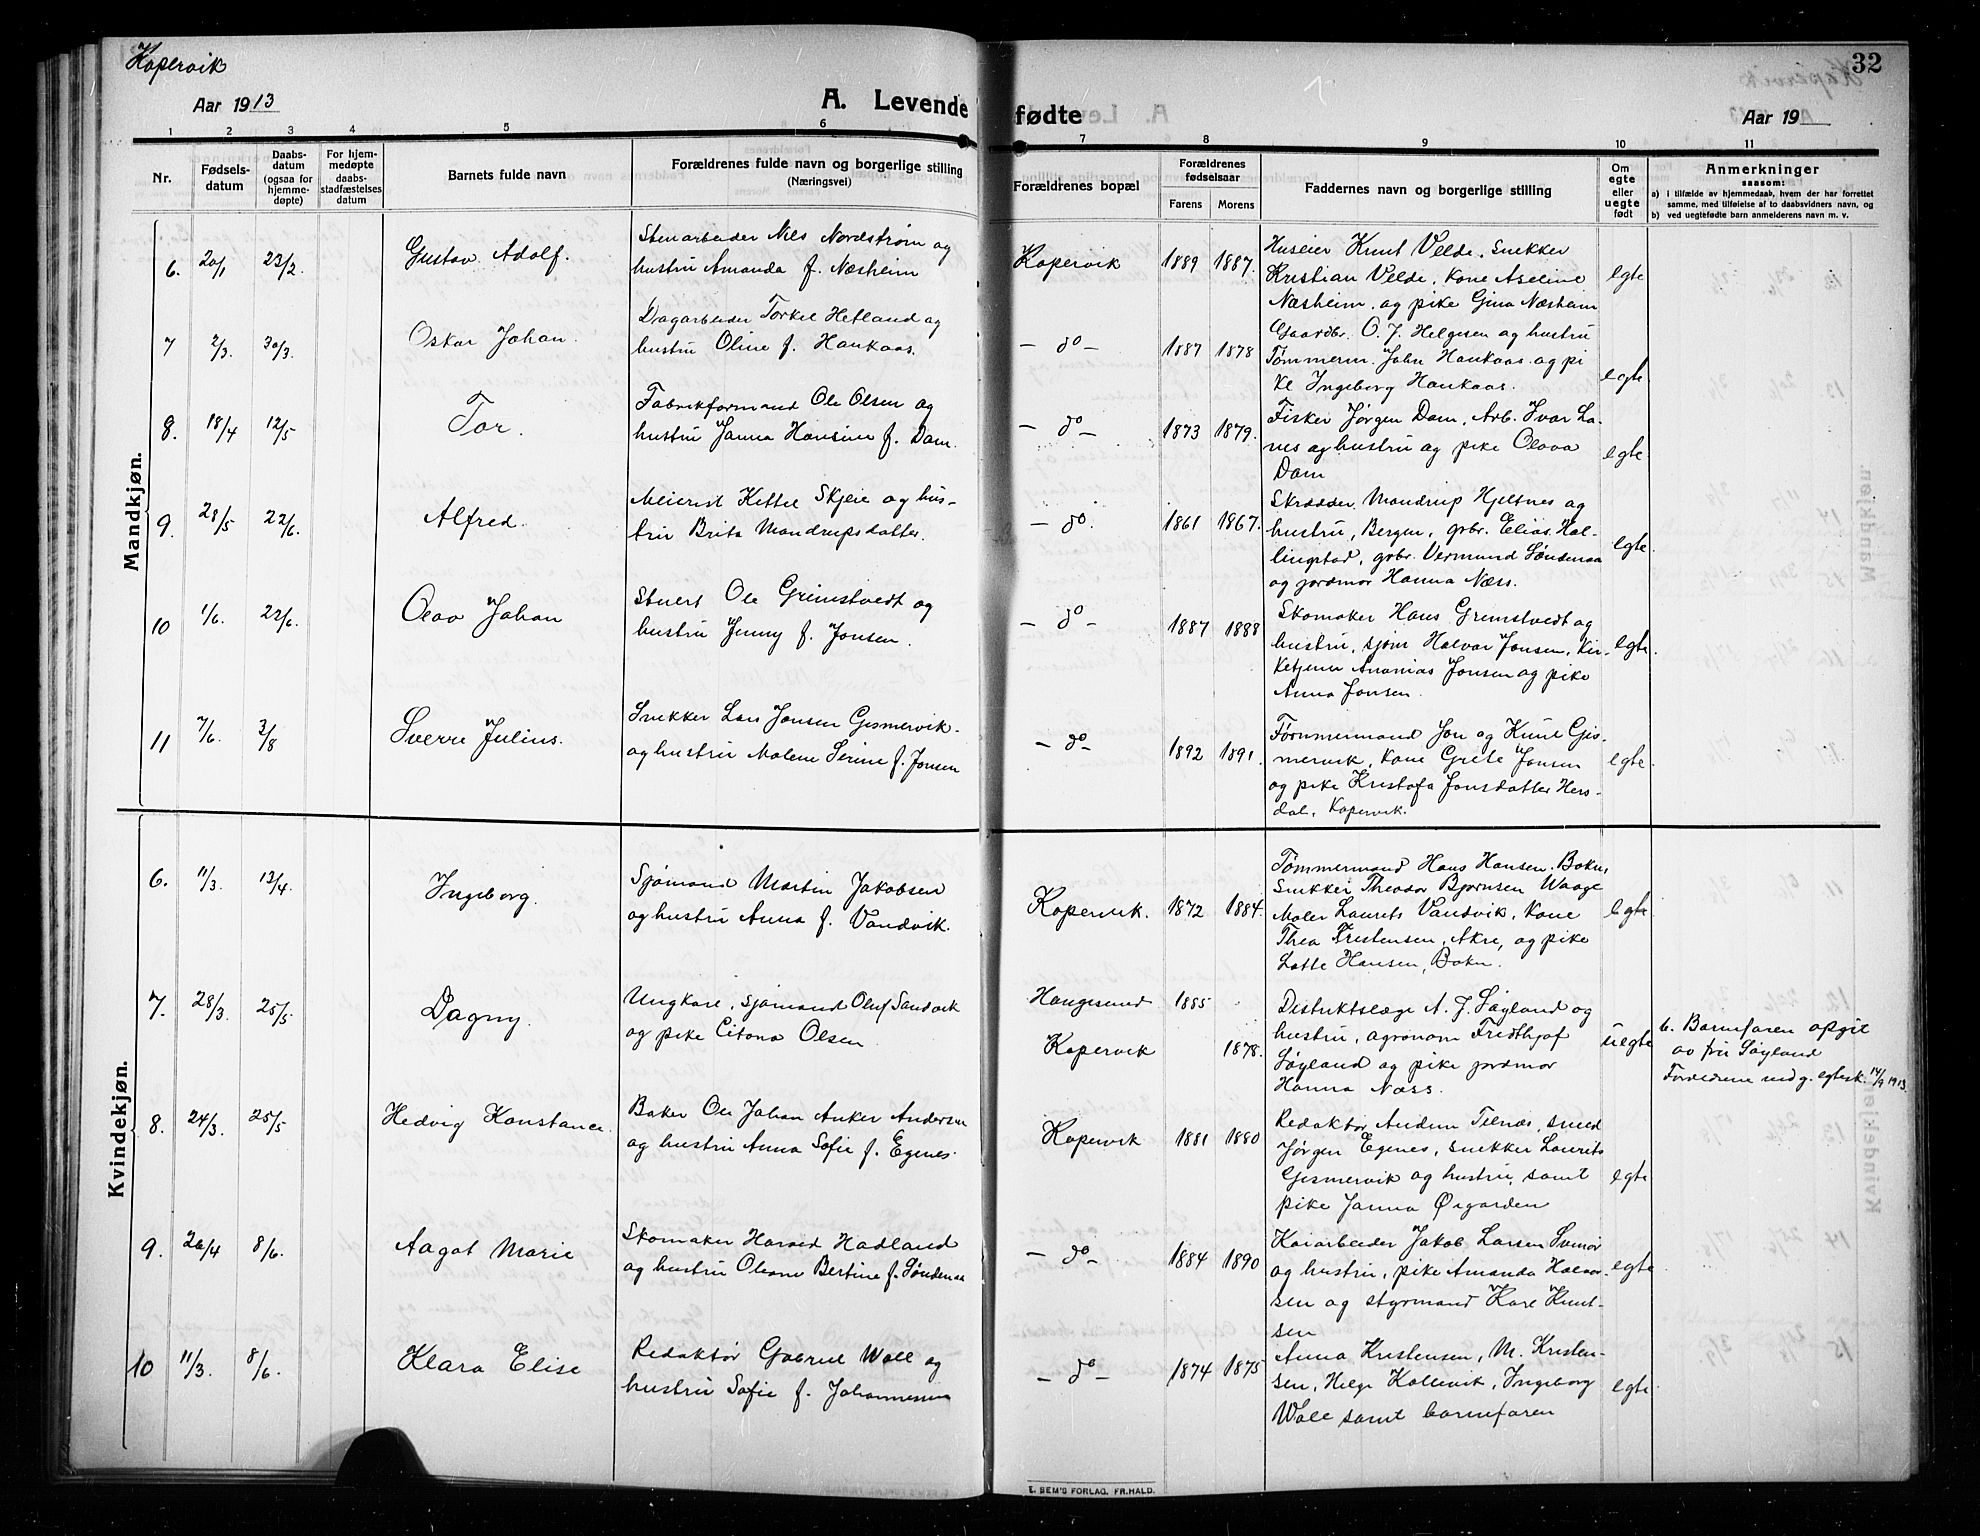 Kopervik
Aar 1913
A. Levende
fødte
Aar 19
32
1 2 3 4 5 6 7 8 9 10 11
Nr.
Fødsels-
datum
Daabs-
datum
(ogsaa for
hjemme-
døpte)
For hjem-
medøpte
daabs-
stadfæstelses
datum
Barnets fulde navn
Forældrenes fulde navn og borgerlige stilling
(Næringsvei)
Forældrenes bopæl
Forældrenes
fødselsaar
Farens
Morens
Faddernes navn og borgerlige stilling
Om
egte
eller
uegte
født
Anmerkninger
saasom:
a) i tilfælde av hjemmedaab, hvem der har forrettet
samme, med tilføielse av to daabsvidners navn, og
b) ved uegtefødte barn anmelderens navn m. v.
Mandkjøn.
6. 20/1 23/2. Gustav Adolf.
Stenarbeider Nils Nordstrøm og
hustru Amanda f. Næsheim
Kopervik 1889 1887.
Huseier Knut Velde, snekker
Kristian Velde, kone Aseline
Næsheim, og pike Gina Næsheim
egte
7 2/3. 30/3. Oskar Johan.
Dagarbeider Torkel Hetland og
hustru Oline f. Haukaas.
- do - 1887 1878
Gaardbr. O. J. Helgesen og hustru
Tømmerm. John Haukaas og pi
ke Ingeborg Haukaas.
egte
8. 18/4 12/5 Tor.
Fabrikformand Ole Olsen og
hustru Janna Hansine f. Dam.
- do - 1873 1879.
Fisker Jørgen Dam, Arb. Ivar La-
nes og hustru og pike Olava
Dam
egte
9. 28/5 22/6. Alfred.
Meierist Kittel Skjeie og hus-
tru Brita Mandrupsdatter.
- do. 1861 1867.
Skrædder Mandrup Hjeltnes og
hustru, Bergen, grbr. Elias Hal-
lingstad, grbr. Vermund Søndenaa
og jordmor Hanna Næss.
egte.
10 1/6. 22/6. Olav Johan
Stuert Ole Grimstvedt og
hustru Jenny f. Jonsen.
- do - 1887 1888
Skomaker Hans Grimstvedt og
hustru, sjøm Halvar Jonsen, Kir-
ketjener Ananias Jonsen og pike
Anna Jonsen.
egte.
11 7/6. 3/8 Sverre Julius.
Snekker Lars Jonsen Gismervik
og hustru Malene Serine f. Jonsen
- do - 1892 1891.
Tømmermand Jon og Knut Gis-
mervik, kone Grete Jonsen
og pike Kristofa Jonsdatter Hers-
dal, Kopervik.
egte
Kvindekjøn.
6. 11/3. 13/4. Ingeborg.
Sjømand Martin Jakobsen
og hustru Anna f. Vandvik.
Kopervik. 1872 1884.
Tømmermand Hans Hansen, Bokn,
Snekker Theodor Bjørnsen Waage
Maler Laurits Vandvik, kone
Thea Kristensen, Akre, og pike
Lotte Hansen, Bokn.
egte
7. 28/3. 25/5 Dagny.
Ungkare, sjømand Oluf Sandvik
og pike Citona Olsen
Haugesund 1885
Kopervik 1878.
Distriktslæge A. J. Søyland og
hustru, agronom Fredthjof
Søyland og pike jordmor
Hanna Næss.
uegte
b. Barnefaren opgit
av fru Søyland
Forældrene med g. egtesk. 14/9 1913
8. 24/3. 25/5 Hedvig Konstance.
Baker Ole Johan Anker Andersen
og hustru Anna Sofie f. Egenes.
Kopervik 1881 1880
Redaktør Anden Tilnæs, smed
Jørgen Egenes, snekker Laurits
Gismervik og hustru, samt
pike Janna Øigarden
egte
9. 26/4 8/6. Aagot Marie
Skomaker Harald Hadland
og hustru Oleane Bertine f. Søndenaa
- do - 1884 1890
Kaiarbeider Jakob Larsen Svemør
og hustru, pike Amanda Halvor-
sen og styrmand Kare Knut-
sen
egte
10 11/3. 8/6. Klara Elise
Redaktør Gabriel Wall og
hustru Sofie f. Johannessen
- do - 1874 1875
Anna Kristensen, M. Kristen-
sen, Helge Kallevik, Ingeborg
Wall samt barnefaren
egte
E. SEM'S FORLAG, FR.HALD.